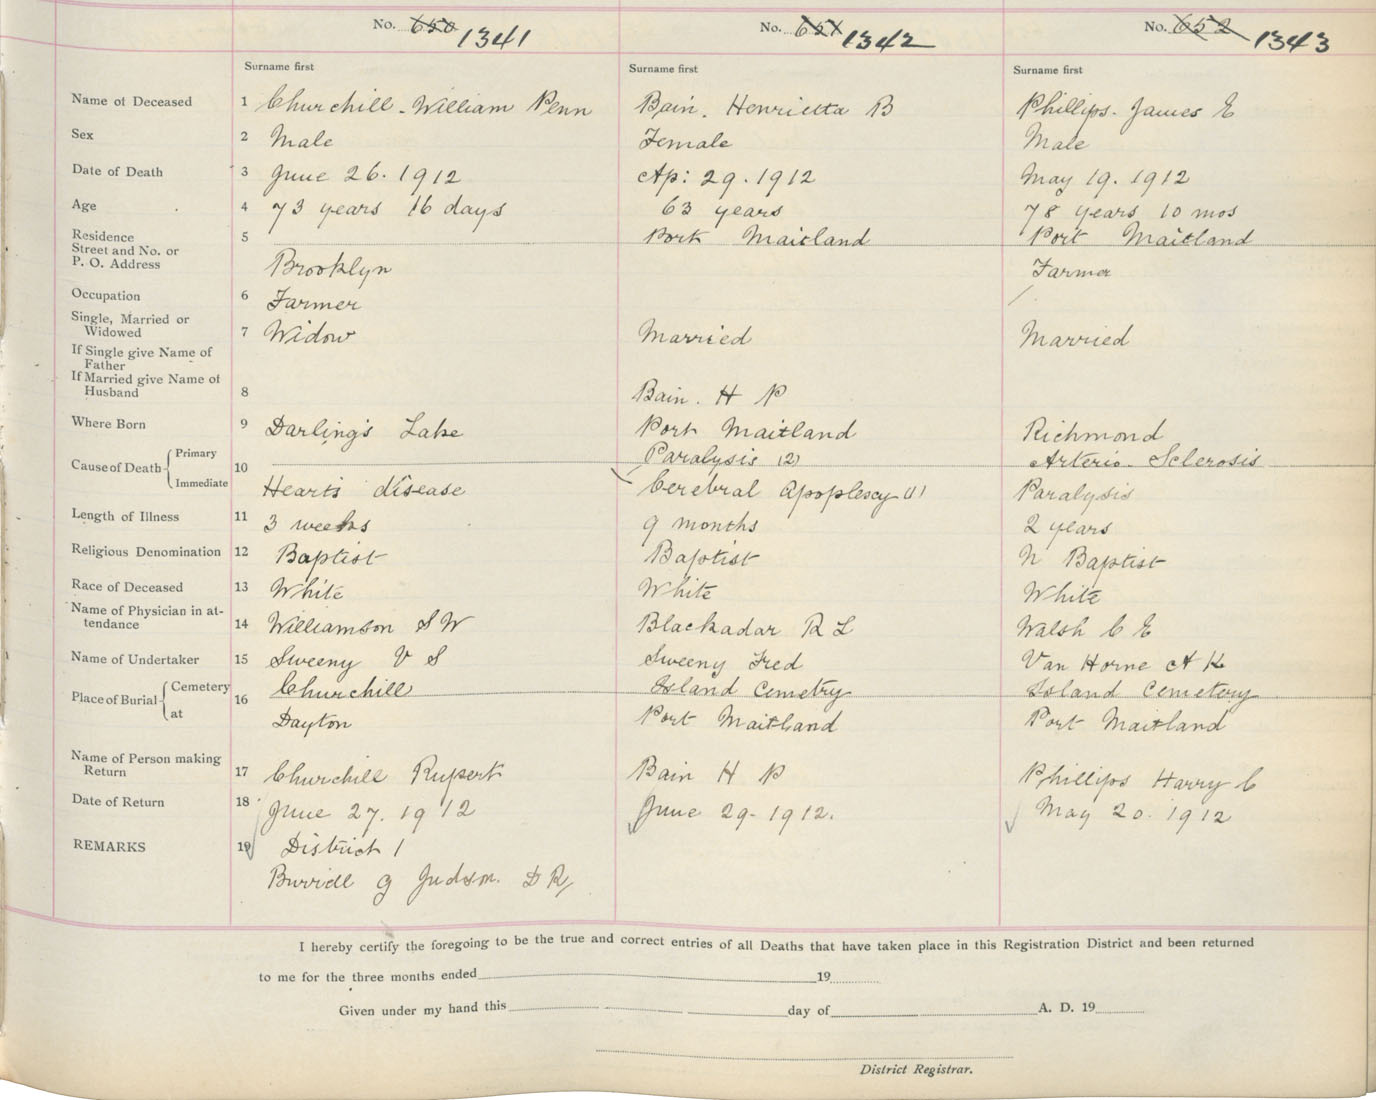 No. 650 1341 No. 651 1342 No. 652 1343
Surname first Surname first Surname first
Name of Deceased 1 Churchill - William Penn Bain. Henrietta B Phillips. James E
Sex 2 Male Female Male
Date of Death 3 June 26. 1912 Ap: 29. 1912 May 19. 1912
Age 4 73 years 16 days 63 years 78 years 10 mos
Residence 5 Port Maitland Port Maitland
Street and No. or
P. O. Address Brooklyn Farmer
Occupation 6 Farmer
Single, Married or
Widowed 7 Widow Married Married
If Single give Name of
Father
If Married give Name of
Husband 8 Bain. H P
Where Born 9 Darling's Lake Port Maitland Richmond
Cause of Death Primary 10 Paralysis (2) Arterio-Sclerosis
Immediate Hearts disease Cerebral Apoplescy (1) Paralysis
Length of Illness 11 3 weeks 9 months 2 years
Religious Denomination 12 Baptist Baptist N Baptist
Race of Deceased 13 White White White
Name of Physician in at-
tendance 14 Williamson S W Blackadar R L Walsh C E
Name of Undertaker 15 Sweeny V S Sweeny Fred Van Horne A K
Place of Burial Cemetery 16 Churchill Island Cemetry Island Cemetery
at Dayton Port Maitland Port Maitland
Name of Person making
Return 17 Churchill Rupert Bain H P Phillips Harry C
Date of Return 18 June 27. 1912 June 29- 1912. May 20. 1912
REMARKS 19 District 1
Burrell G Judson. D R
I hereby certify the foregoing to be the true and correct entries of all Deaths that have taken place in this Registration District and been returned
to me for the three months ended 19
Given under my hand this day of A. D. 19
District Registrar.